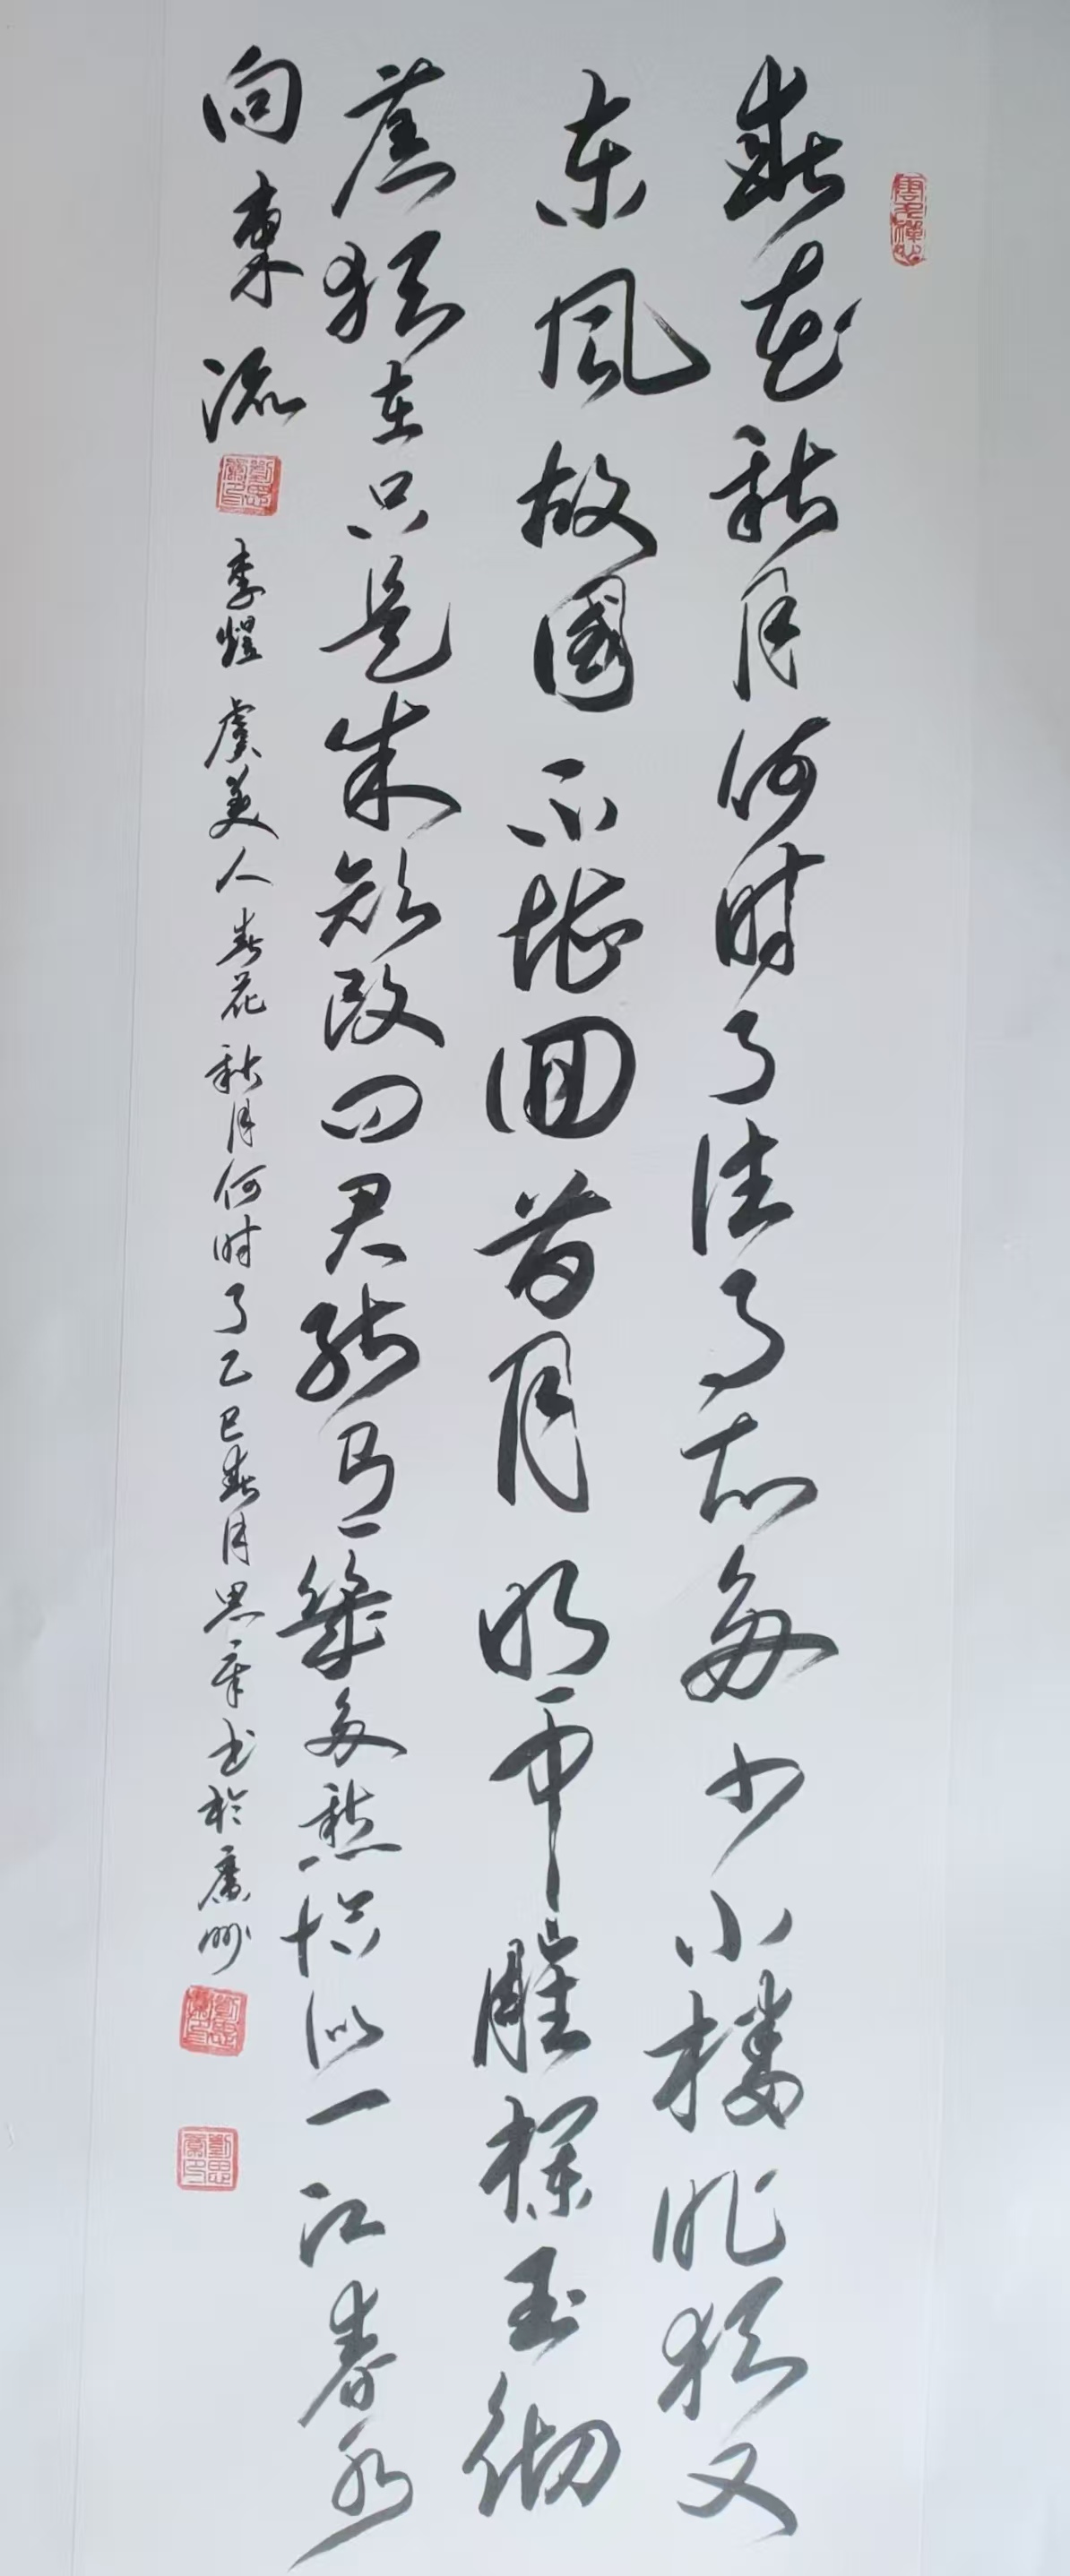 春花秋月何时了往事知多少小楼昨夜又
东风故國不堪回首月明中雕栏玉砌
應猶在只是朱颜改问君能有幾多愁恰似一江春水
向東流
李煜 虞美人 春花秋月何时了 乙巳春月思章书於廣州